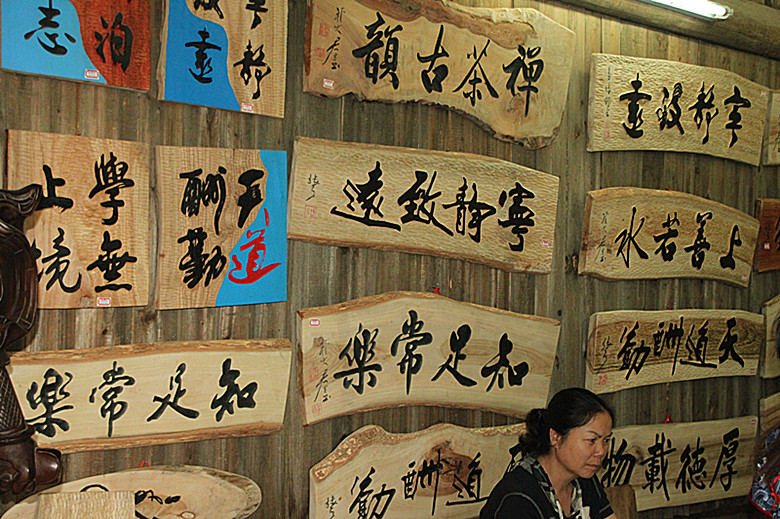 泊
志
靜
致遠
禅茶古韻
宁靜致遠
學無
止境
天道
酬勤
寧靜致遠
上善若水
知足常樂
知足常樂
天道酬勤
道酬勤
厚德載物